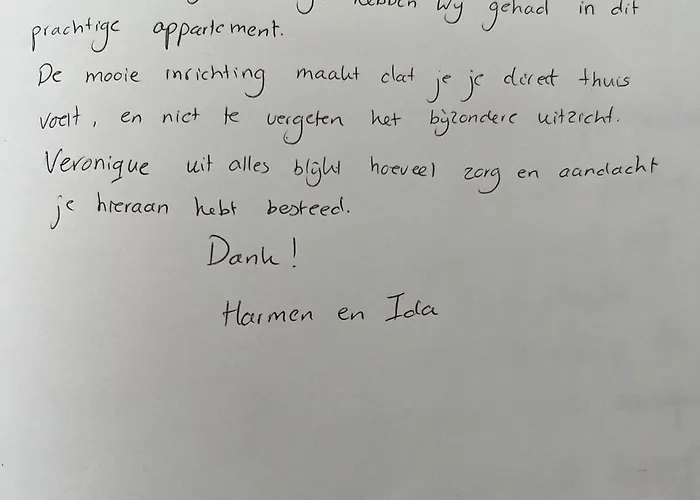 hebben wy gehad in dit
prachtige appartement.
De mooie inrichting maakt dat je je direct thuis
voelt, en niet te vergeten het bijzondere uitzicht.
Veronique uit alles blijkt hoeveel zorg en aandacht
je hieraan hebt besteed.
Dank!
Harmen en Ida